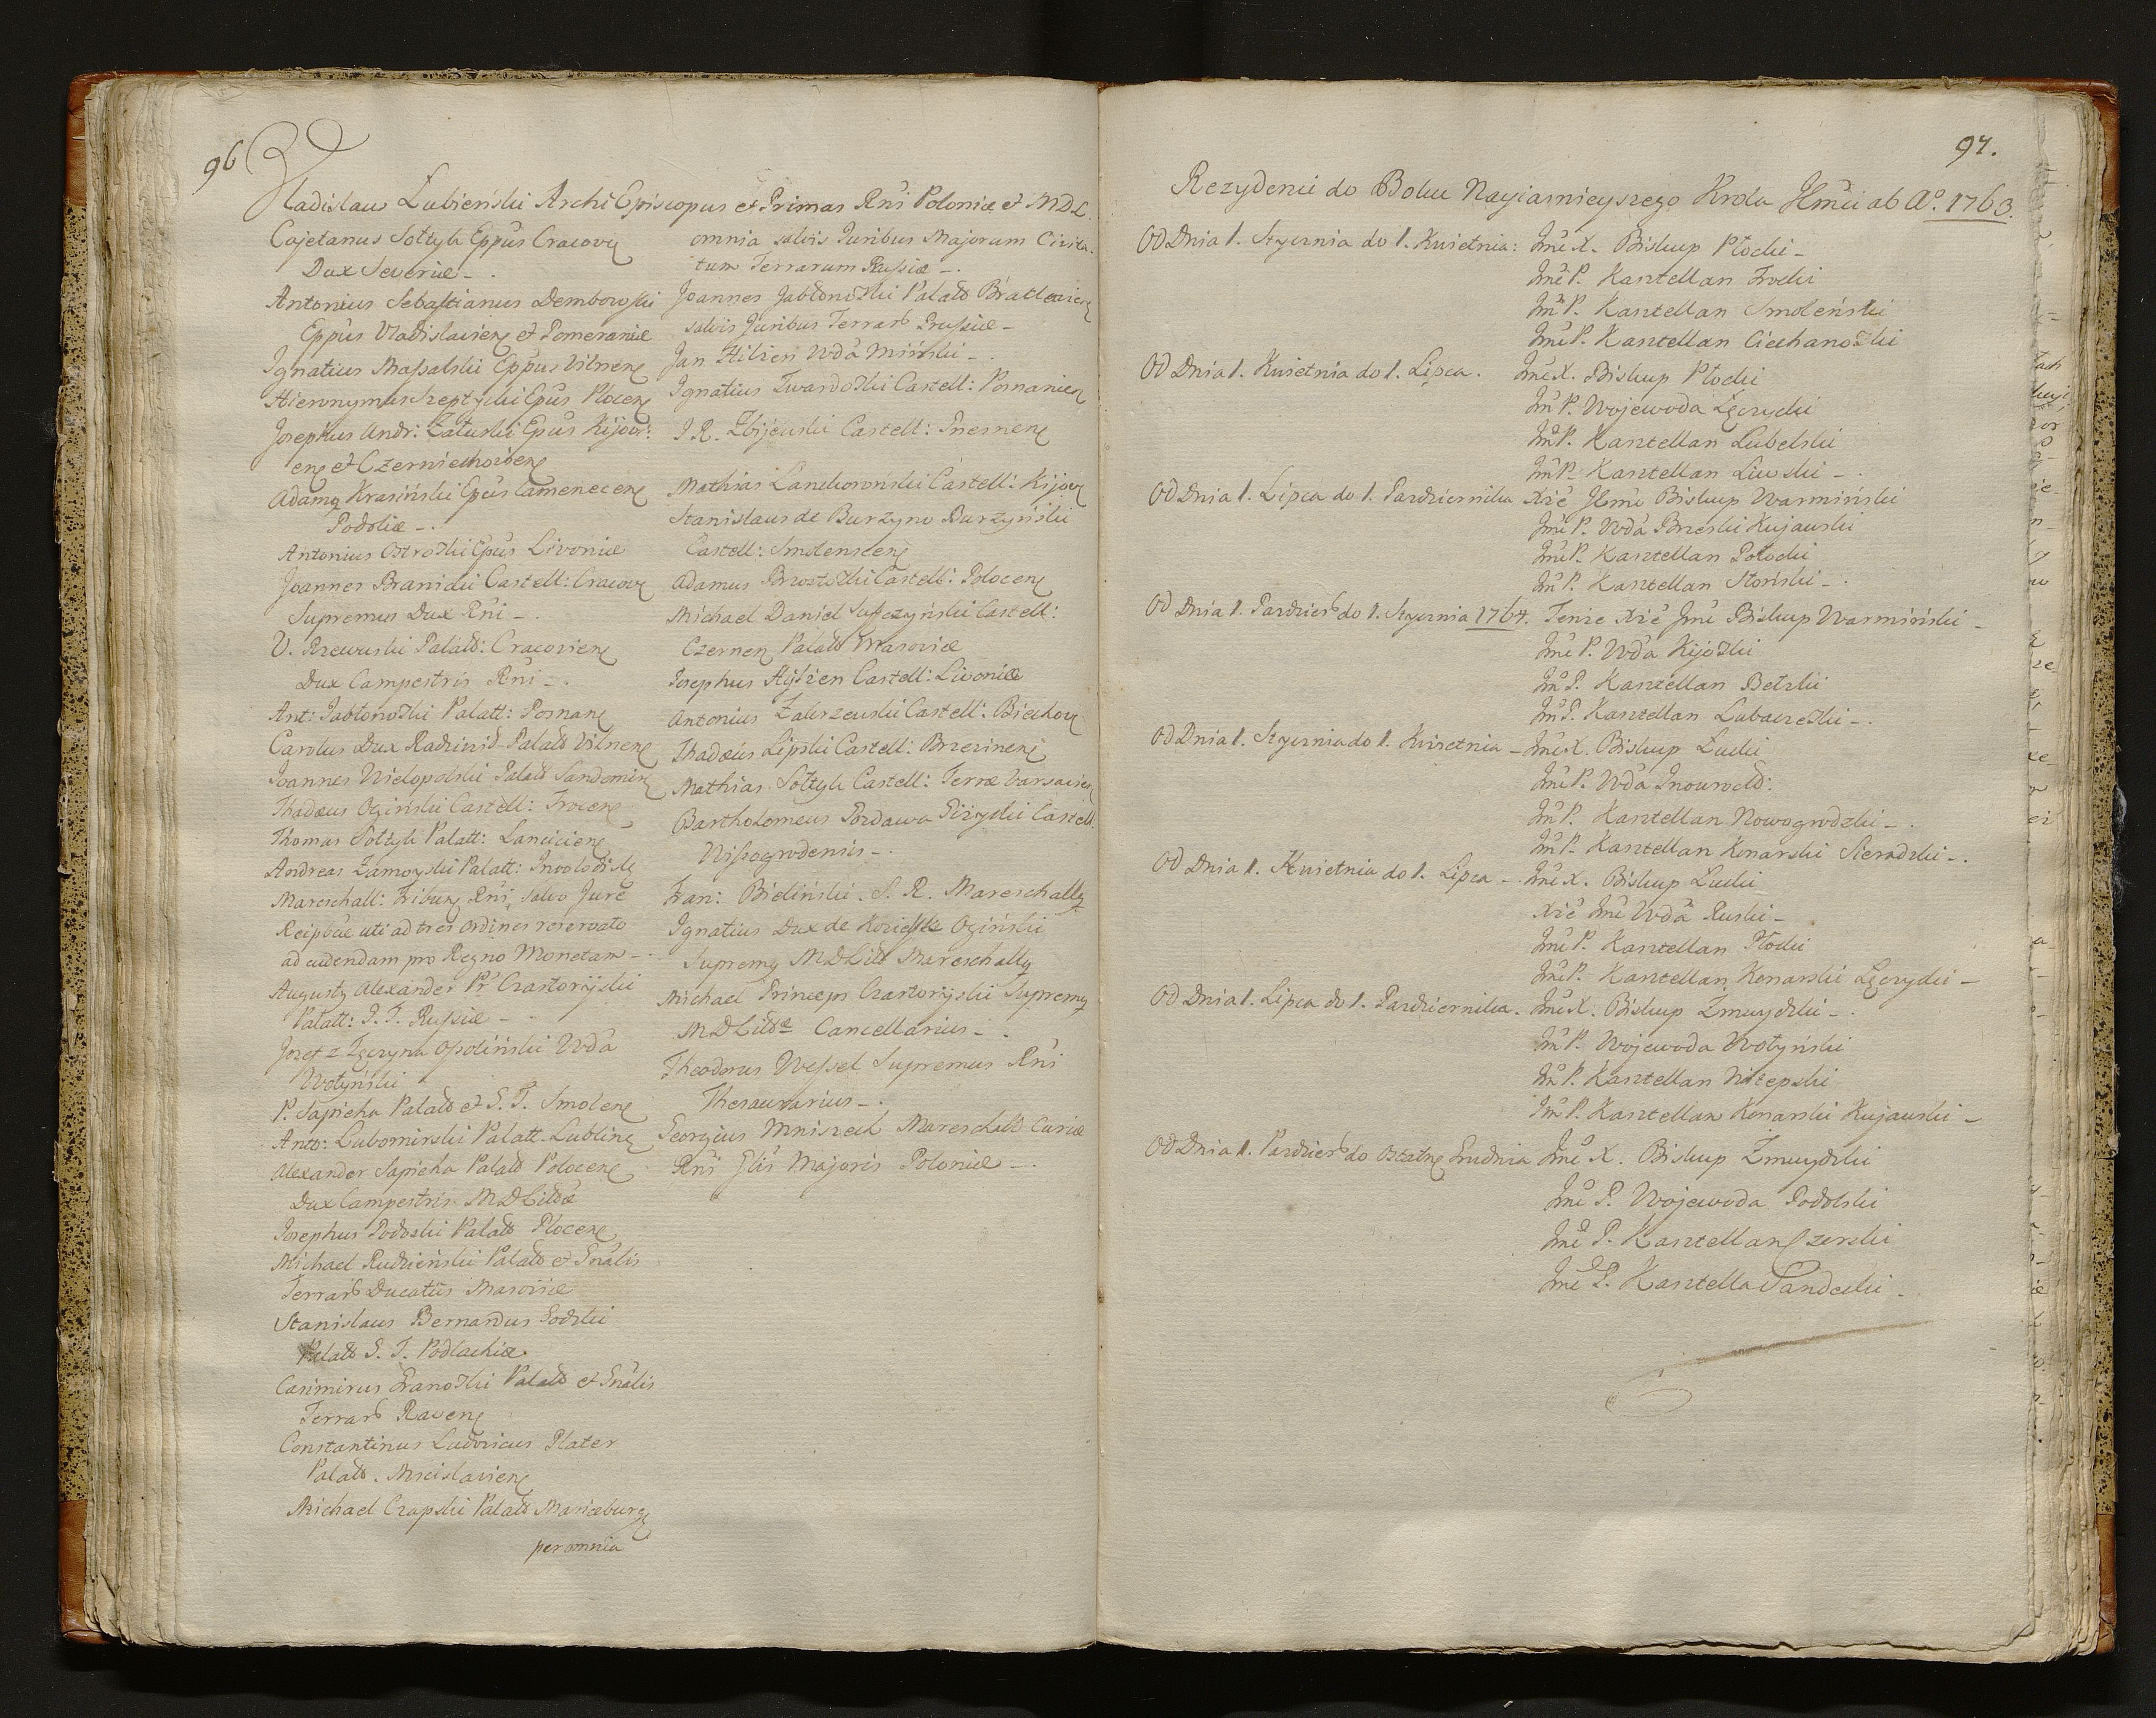 96
Wladislaus Lubieński Archi Episcopus et Primas Rni Poloniæ et MDL.
Cajetanus Sołtyk Eppus Cracoviȩ
Dux Severiæ -.
Antonius Sebastianus Dembowski
Eppus Vladislavienȩ et Pomeraniæ
Ignatius Massalski Eppus Vilnenȩ
Hieronymus Szeptycki Epus Plocenȩ
Josephus Andr: Załuski Epus Kijovi:
enȩ et Czerniechovienȩ
Adamȩ Krasiński Epus Camenecenȩ
Podoliæ -.
Antonius Ostrowski Epus Livoniæ
Joannes Branicki Castell: Cracovȩ
Supremus Dux Rni -.
V. Rzewuski Palatt: Cracovienȩ
Dux Campestris Rni -.
Ant: Jabłonowski Palatt: Posnanȩ
Carolus Dux Radziwił Palatt Vilnenȩ
Joannes Wielopolski Palatt Sandomirȩ
Thadæus Ogiński Castell: Trocenȩ
Thomas Sołtyk Palatt: Lancicienȩ
Andreas Zamoyski Palatt: Inovlodislȩ
Mareschall: Tribunȩ Rni, salvo Jure
Reipbcæ uti ad tres ordines reservato
ad cudendam pro Regno Monetam -
Augustȩ Alexander Pr Czartoryski
Palatt: G. T. Russiæ -
Jozef z Tęczyna Ossoliński Wda
Wołyński
P. Sapieha Palatt et G. T. Smolenȩ
Anto: Lubomirski Palatt. Lublinȩ
Alexander Sapieha Palatt Polocenȩ
Dux Campestris MDLittæ
Josephus Podoski Palatt Plocenȩ
Michael Rudzieński Palatt et Gnalis
Terrar Ducatus Masoviæ
Stanislaus Bernardus Godzki
Palatt G. T. Podlachiæ
Casimirus Granowski Palatt et Gnalis
Terrar Ravenȩ
Constantinus Ludovicus Plater
Palatt. Mscislavienȩ
Michael Czapski Palatt Mariæburgȩ
per omnia
omnia salvis Juribus Majorum Civita.
tum Terrarum Prussiæ -.
Joannes Jabłonowski Palatt Bratlavienȩ
salvis Juribus Terrar Prussiæ -
Jan Hilzen Wda Miński -.
Ignatius Twardowski Castell: Posnanienȩ
J. R. Zbijewski Castell: Gnesnenȩ
Mathias Lanckoroński Castell: Kijovȩ
Stanislaus de Burzyno Burzyński
Castell: Smolenscenȩ
Adamus Brzostowski Castell: Polocenȩ
Michael Daniel Suffczyński Castell:
Czernenȩ Palatt Masoviæ
Josephus Hylzen Castell: Livoniæ
Antonius Zakrzewski Castell: Biechovȩ
Thadæus Lipski Castell: Brzezinenȩ
Mathias Sołtyk Castell: Terræ Varsavienȩ
Bartholomeus Pordawa Giżycki Castell.
Wissogrodensis -.
Fran: Bieliński S. R. Mareschallȩ
Ignatius Dux de Kozielsk Ogiński
Supremȩ MDLitt Mareschallȩ
Michael Princeps Czartoryski Supremȩ
MDLittæ Cancellarius -.
Theodorus Wessel Supremus Rni
Thesaurarius -.
Georgius Mniszech Mareschall Curiæ
Rni Glis Majoris Poloniæ -.
97.
Rezydenci do Boku Nayiasnieyszego Krola JKmci ab Ao. 1763.
Od Dnia 1. Stycznia do 1. Kwietnia: Jmc X. Biskup Płocki -
Jmc P. Kasztellan Trocki
Jmc P. Kasztellan Smoleński
Jmc P. Kasztellan Ciechanowski
Od Dnia 1. Kwietnia do 1. Lipca. Jmc X. Biskup Płocki
Jmc P. Wojewoda Łęczycki
Jmc P. Kasztellan Lubelski
Jmc P. Kasztellan Liwski -.
Od Dnia 1. Lipca do 1. Pazdziernika Xże Jmc Biskup Warmiński
Jmc P. Wda Brzeski Kujawski
Jmc P. Kasztellan Połocki
Jmc P. Kasztellan Słoński -.
Od Dnia 1. Pazdzier do 1. Stycznia 1764. Tenże Xże Jmc Biskup Warmiński -
Jmc P. Wda Kijowski
Jmc P. Kasztellan Bełzki
Jmc P. Kasztellan Lubaczewski -.
Od Dnia 1. Stycznia do 1. Kwietnia - Jmc X. Biskup Łucki
Jmc P. Wda Inowrocł:
Jmc P. Kasztellan Nowogrodzki -.
Jmc P. Kasztellan Konarski Sieradzki -.
Od Dnia 1. Kwietnia do 1. Lipca -. Jmc X. Biskup Łucki
Xże Jmc Wda Ruski -
Jmc P. Kasztellan Płocki
Jmc P. Kasztellan Konarski Łęczycki -
Od Dnia 1. Lipca do 1. Pazdziernika. Jmc X. Biskup Zmuydzki -.
Jmc P. Wojewoda Wołyński
Jmc P. Kasztellan Witepski
Jmc P. Kasztellan Konarski Kujawski -
Od Dnia 1. Pazdzier do Ostatnȩ Grudnia Jmc X. Biskup Zmuydzki
Jmc P. Wojewoda Podolski
Jmc P. Kasztellan Czerski
Jmc P. Kasztella Sandecki -